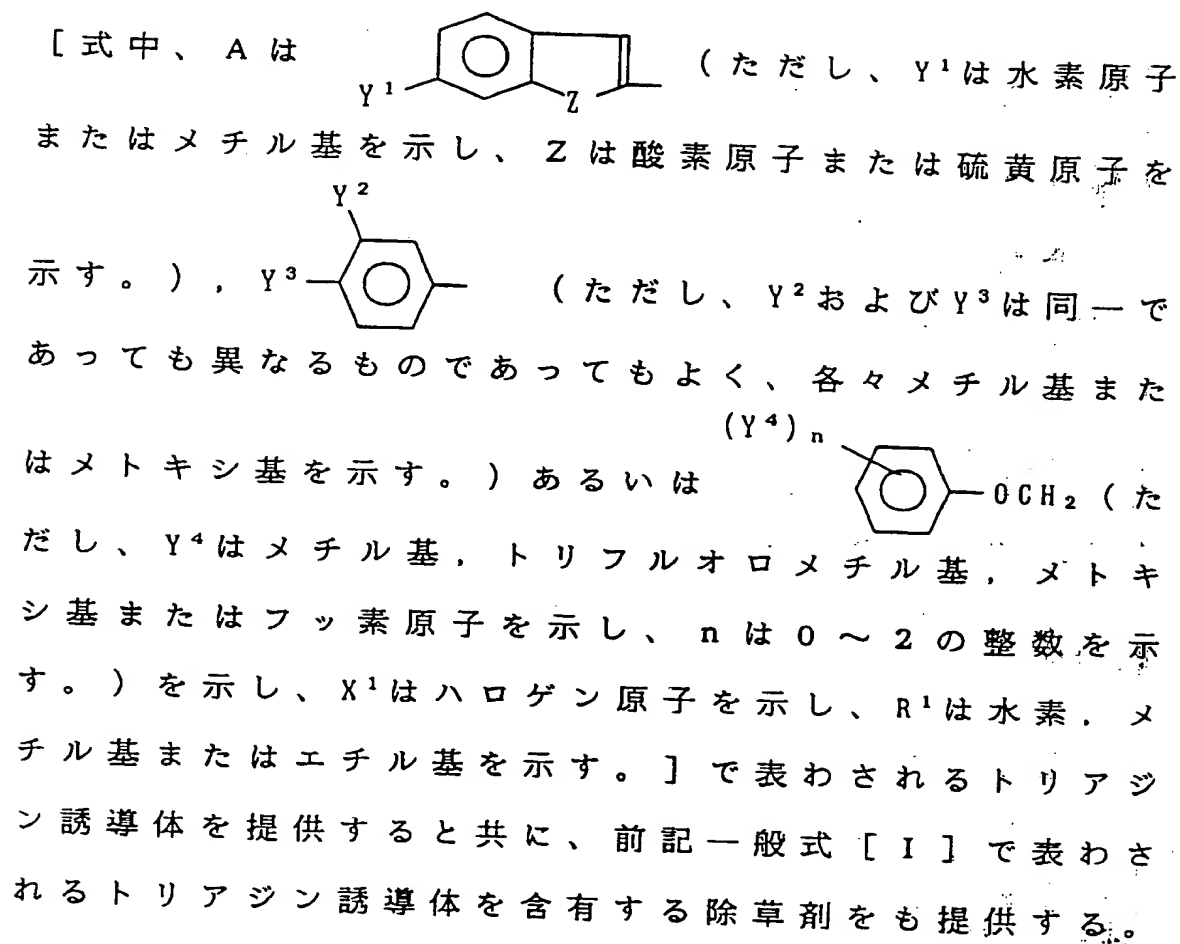 [式中、Aは Y¹ Z (ただし、Y¹は水素原子
またはメチル基を示し、Zは酸素原子または硫黄原子を
Y²
示す。), Y³ (ただし、Y²およびY³は同一で
あっても異なるものであってもよく、各々メチル基また
(Y⁴)n
はメトキシ基を示す。)あるいは OCH₂(た
だし、Y⁴はメチル基,トリフルオロメチル基,メトキ
シ基またはフッ素原子を示し、nは0~2の整数を示
す。)を示し、X¹はハロゲン原子を示し、R¹は水素,メ
チル基またはエチル基を示す。]で表わされるトリアジ
ン誘導体を提供すると共に、前記一般式[I]で表わさ
れるトリアジン誘導体を含有する除草剤をも提供する。